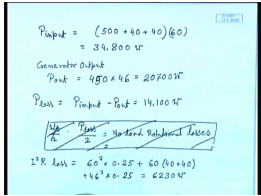 Pinput = (500 + 40 + 40)(60)
= 34,800 W
Generator Output
Pout = 450 × 46 = 20700 W
Ploss = Pinput - Pout = 14,100 W
Ploss / 2 = No load Rotational losses
I²R loss = 60² × 0.25 + 60 (40+40)
+ 46² × 0.25 = 6230 W